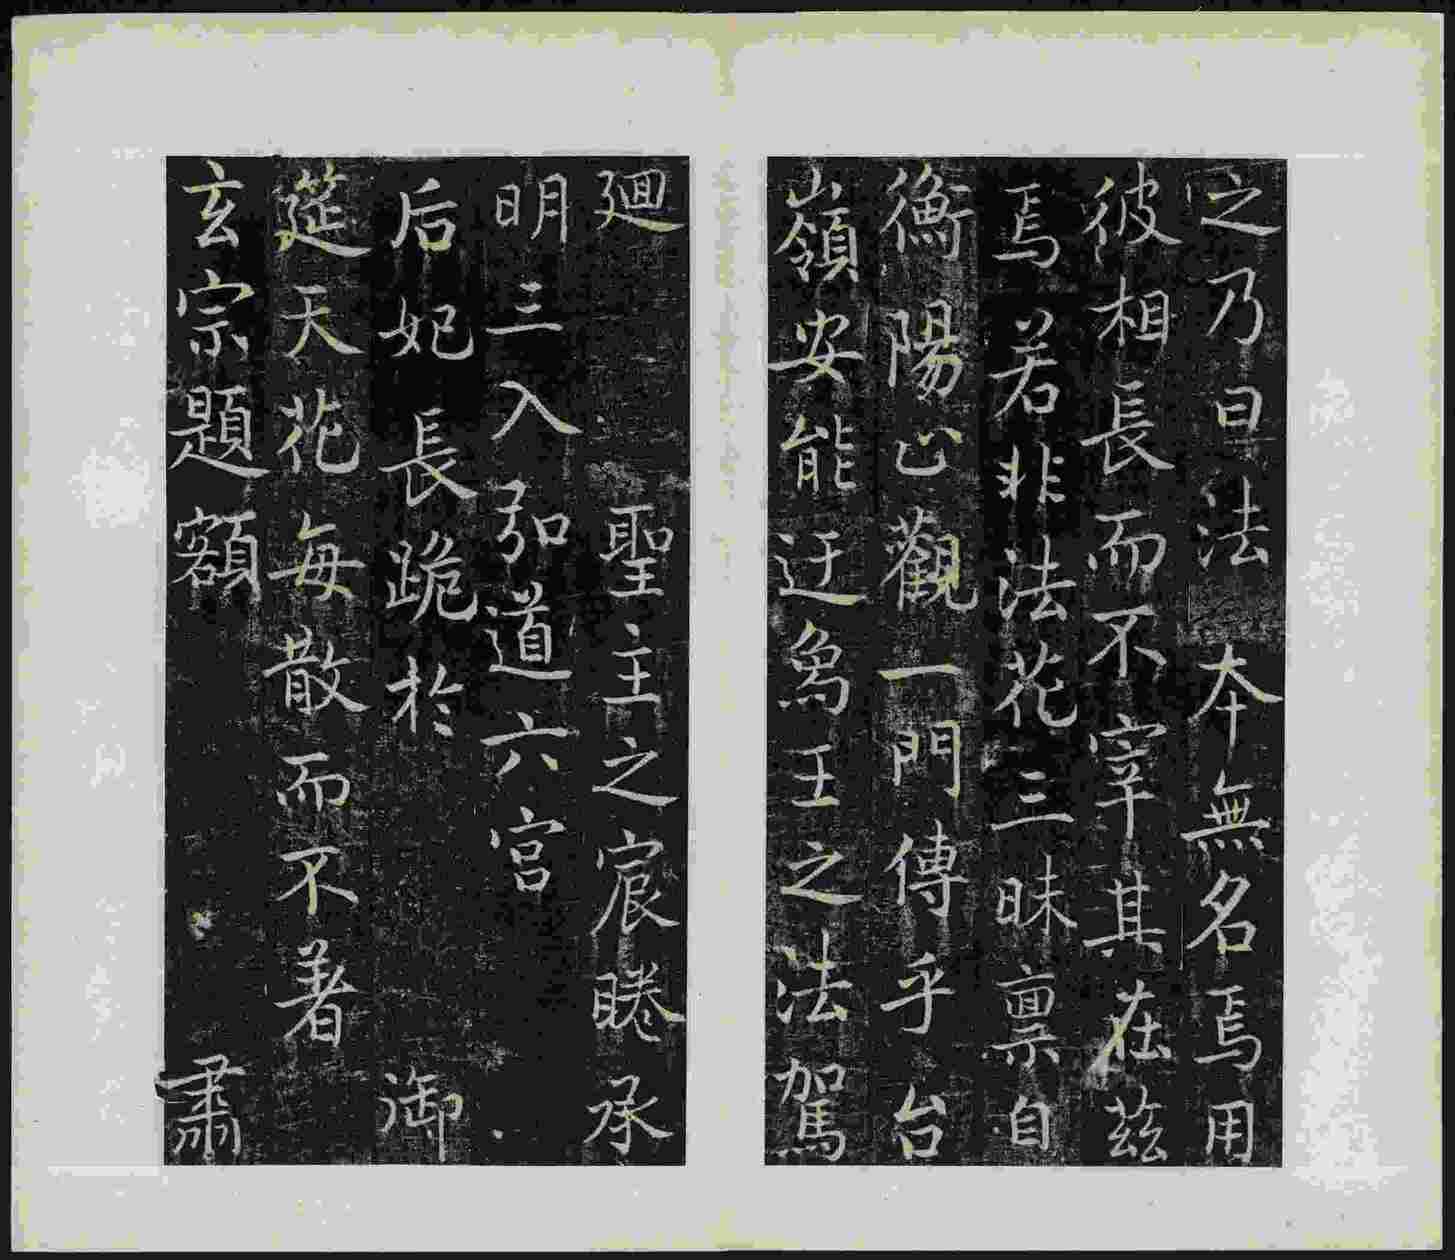 之乃曰法 本無名焉用
彼相長而不宰其在茲
焉若非法花三昧禀自
衡陽止觀一門傳乎台
嶺安能迂象王之法駕
迴 聖主之宸睠承
明三入弘道六宮
后妃長跪於 御
筵天花每散而不著
玄宗題額 肅